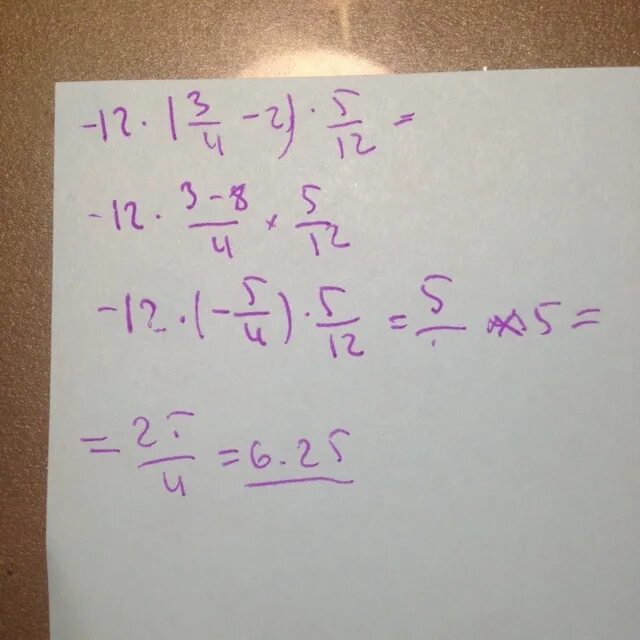 -12 · (3/4 - 2) · 5/12 =
-12 · 3-8/4 × 5/12
-12 · (-5/4) · 5/12 = 5/ 5 =
= 25/4 = 6.25